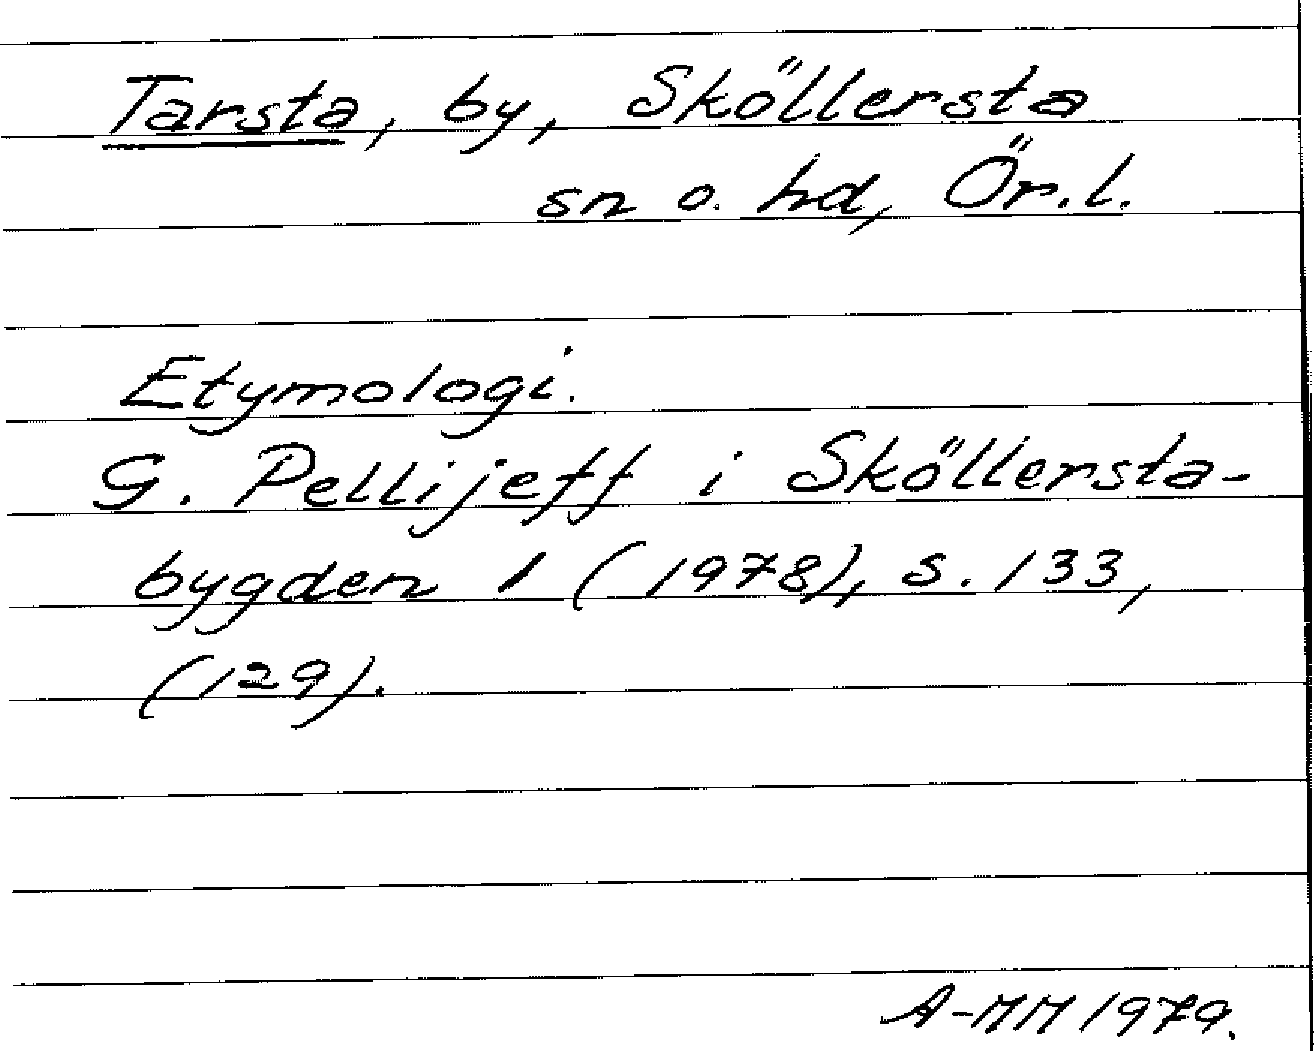 Tarsta, by, Sköllersta
sn o. hd, Ör. l.
Etymologi.
G. Pellijeff i Sköllersta-
bygden 1 (1978), s. 133,
(129).
A-MM 1979.